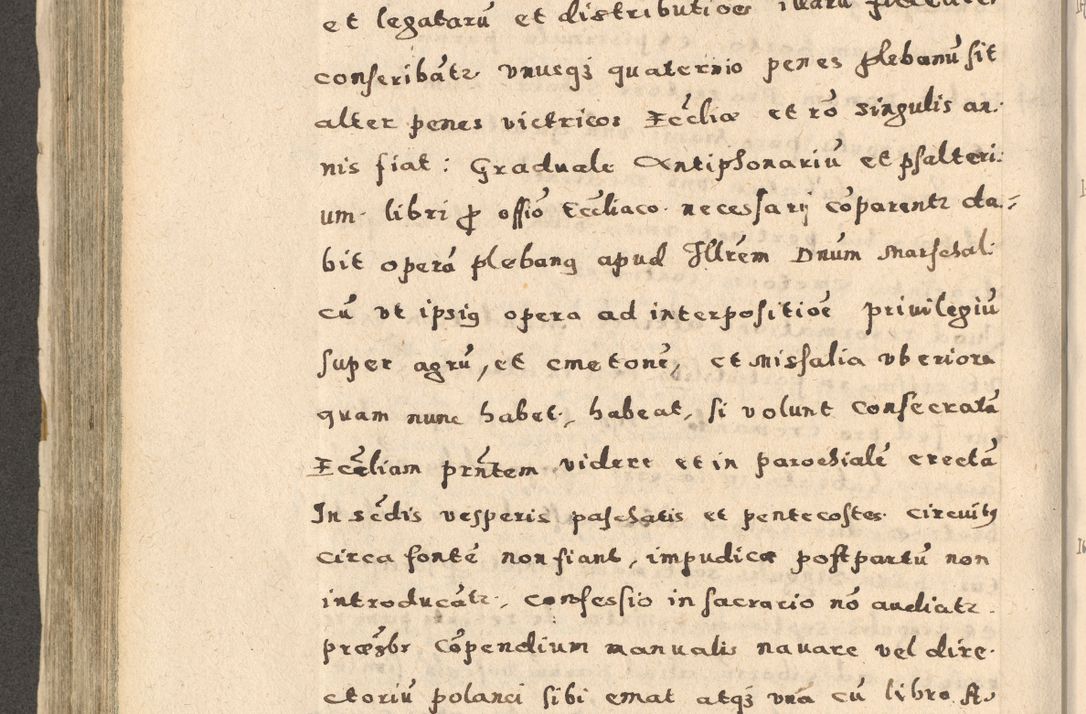 et legatarū et distributiōe
conscribātr vnusqꝫ quaternio penes plebanū sit
alter penes victricos Eccliæ et rō singulis an-
nis fiat: Graduale Antiphonariū et psalteri-
um libri ꝓ offio Eccliaco necessarÿ cōparentr da-
bit operā plebanꝰ apud Illrem Dnum Marschal-
cū vt ipsiꝰ opera ad interpositioē priuilegiū
super agrū, et cmetonē, et Missalia vberiora
quam nunc habet, habeat, si volunt consecratā
Eccliam prntem videre et in parochialē erectā
In scdis vesperis paschatis et pentecostes circuitꝰ
circa fontē non fiant, impudicæ post partū non
introducātr, confessio in sacrario nō audiatr.
præsbr cōpendium manualis nauare vel dire-
ctoriū polanci sibi emat atqꝫ vna cū libro